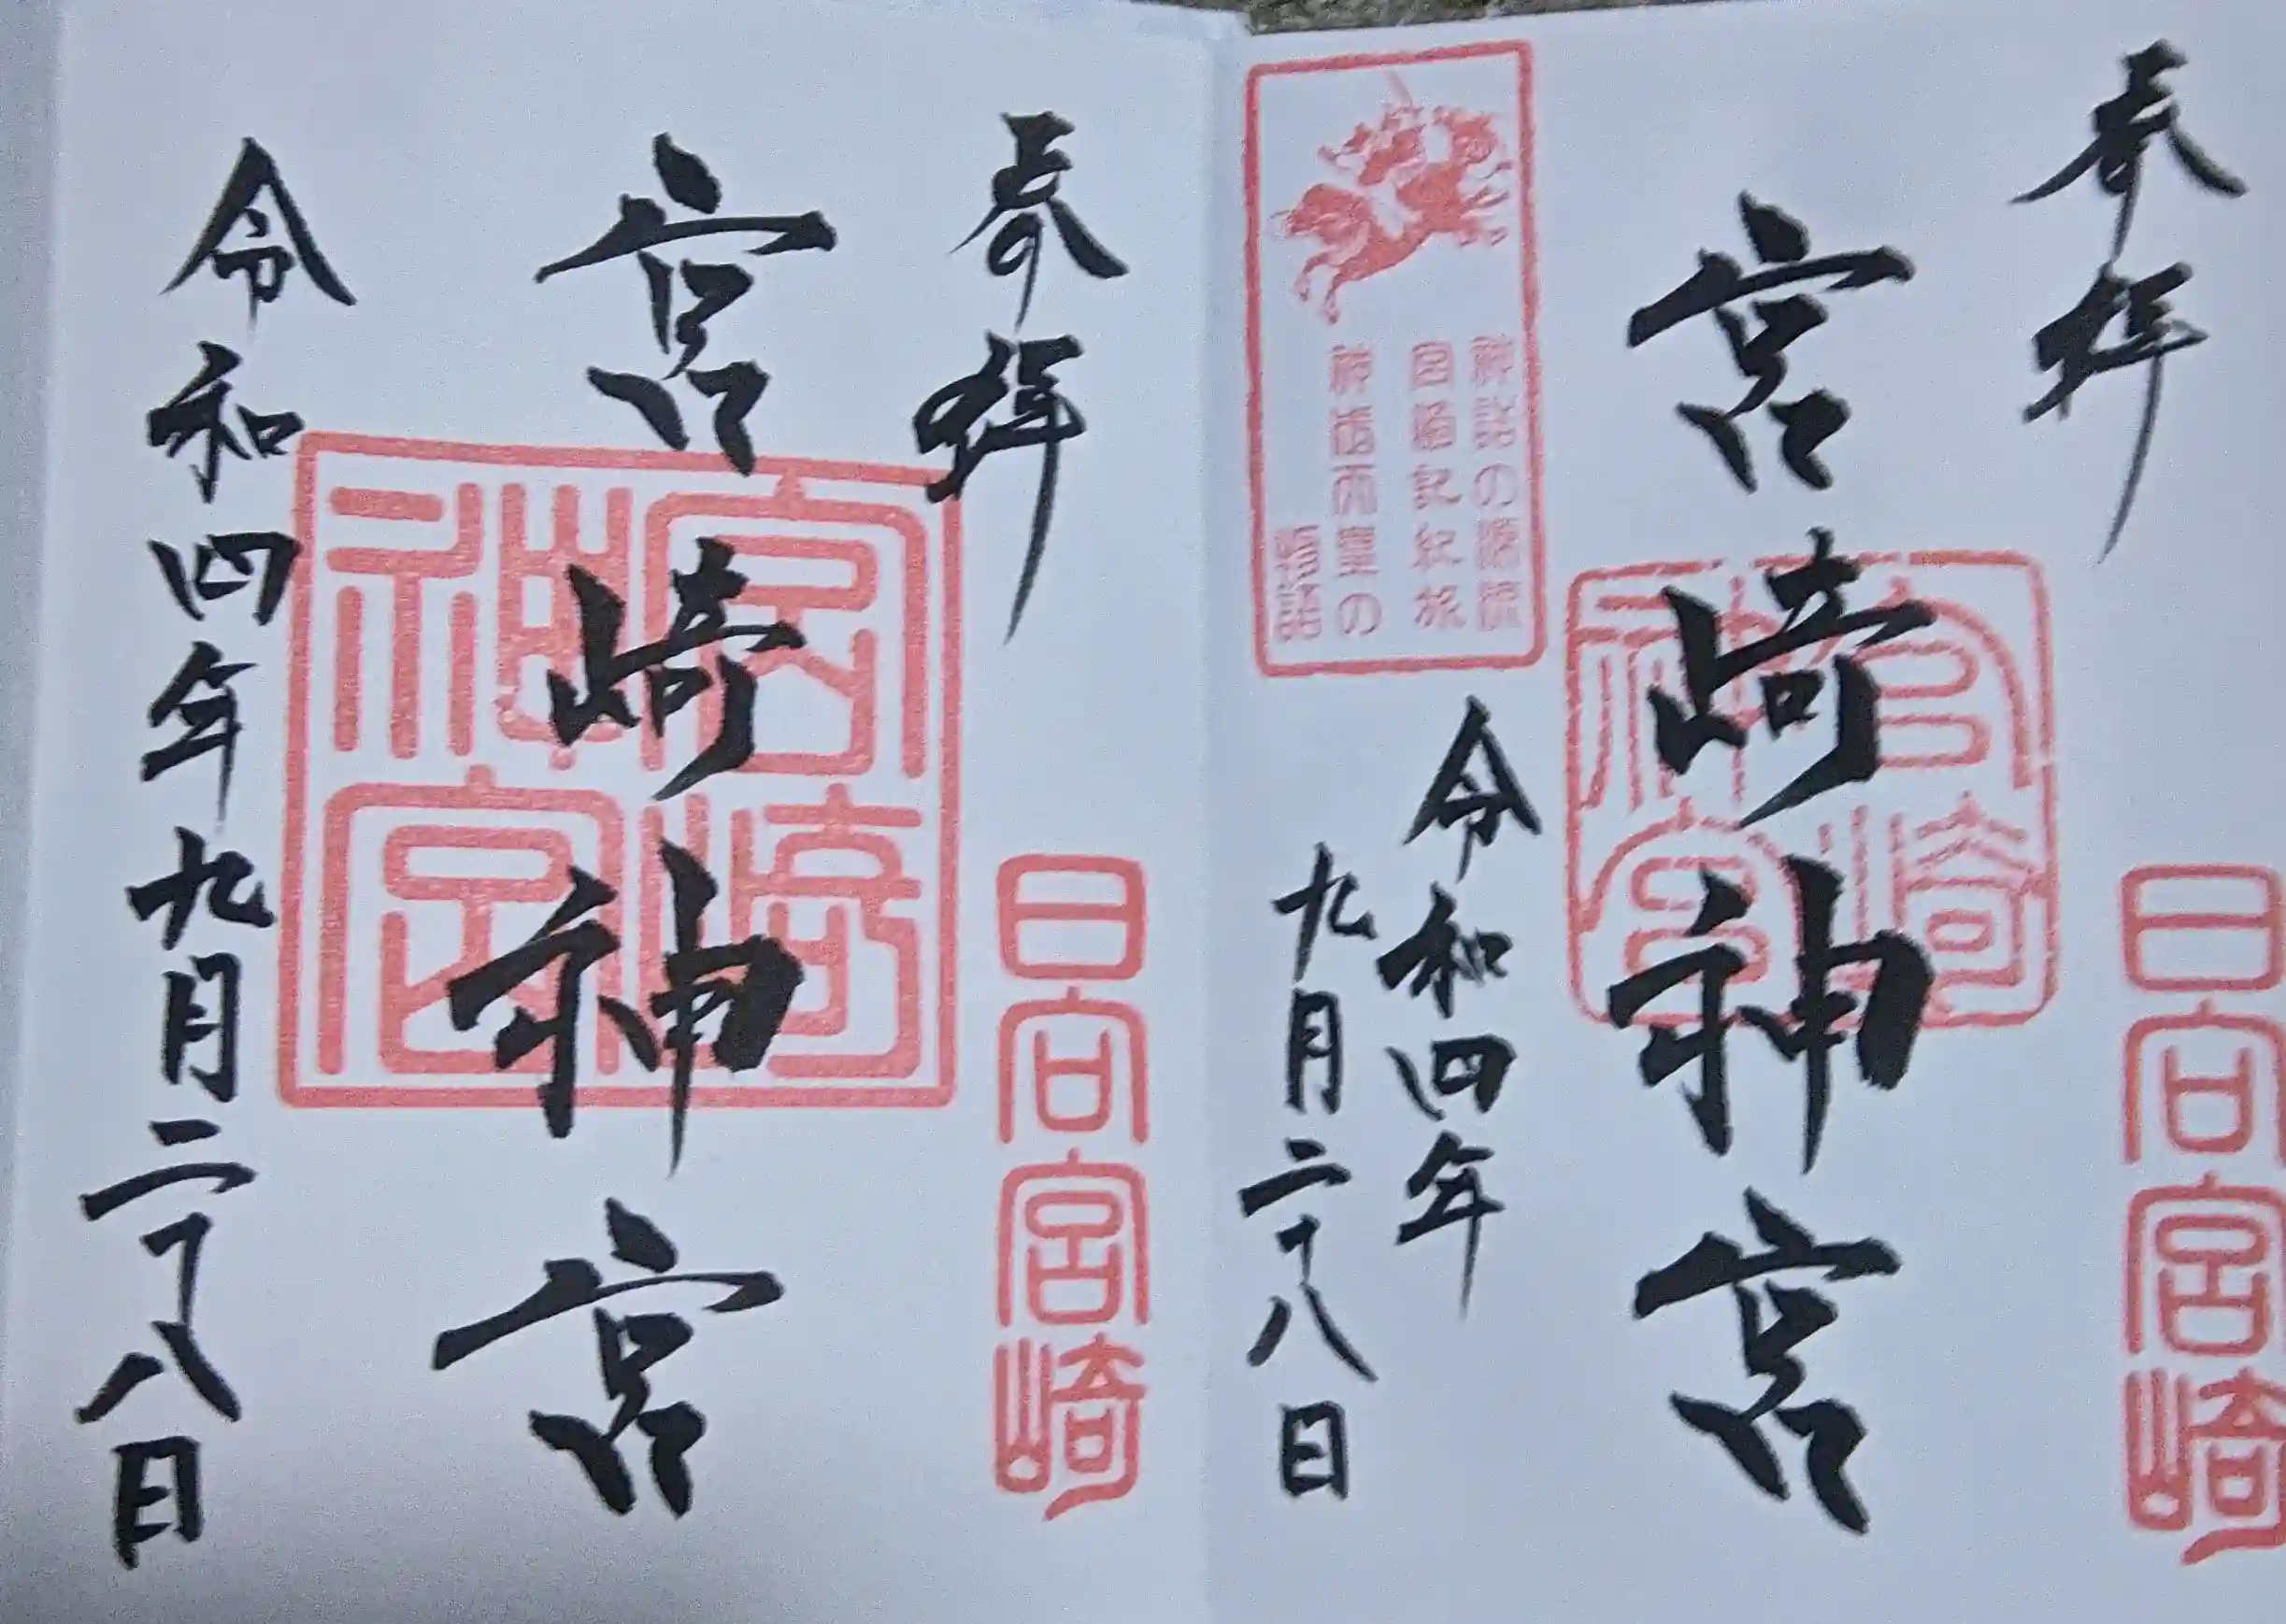 奉拝
日向宮崎
宮崎神宮
宮崎神宮
神話の源流
宮崎記紀旅
神武天皇の
物語
令和四年
九月二十八日
奉拝
日向宮崎
宮崎神宮
宮崎神宮
令和四年九月二十八日